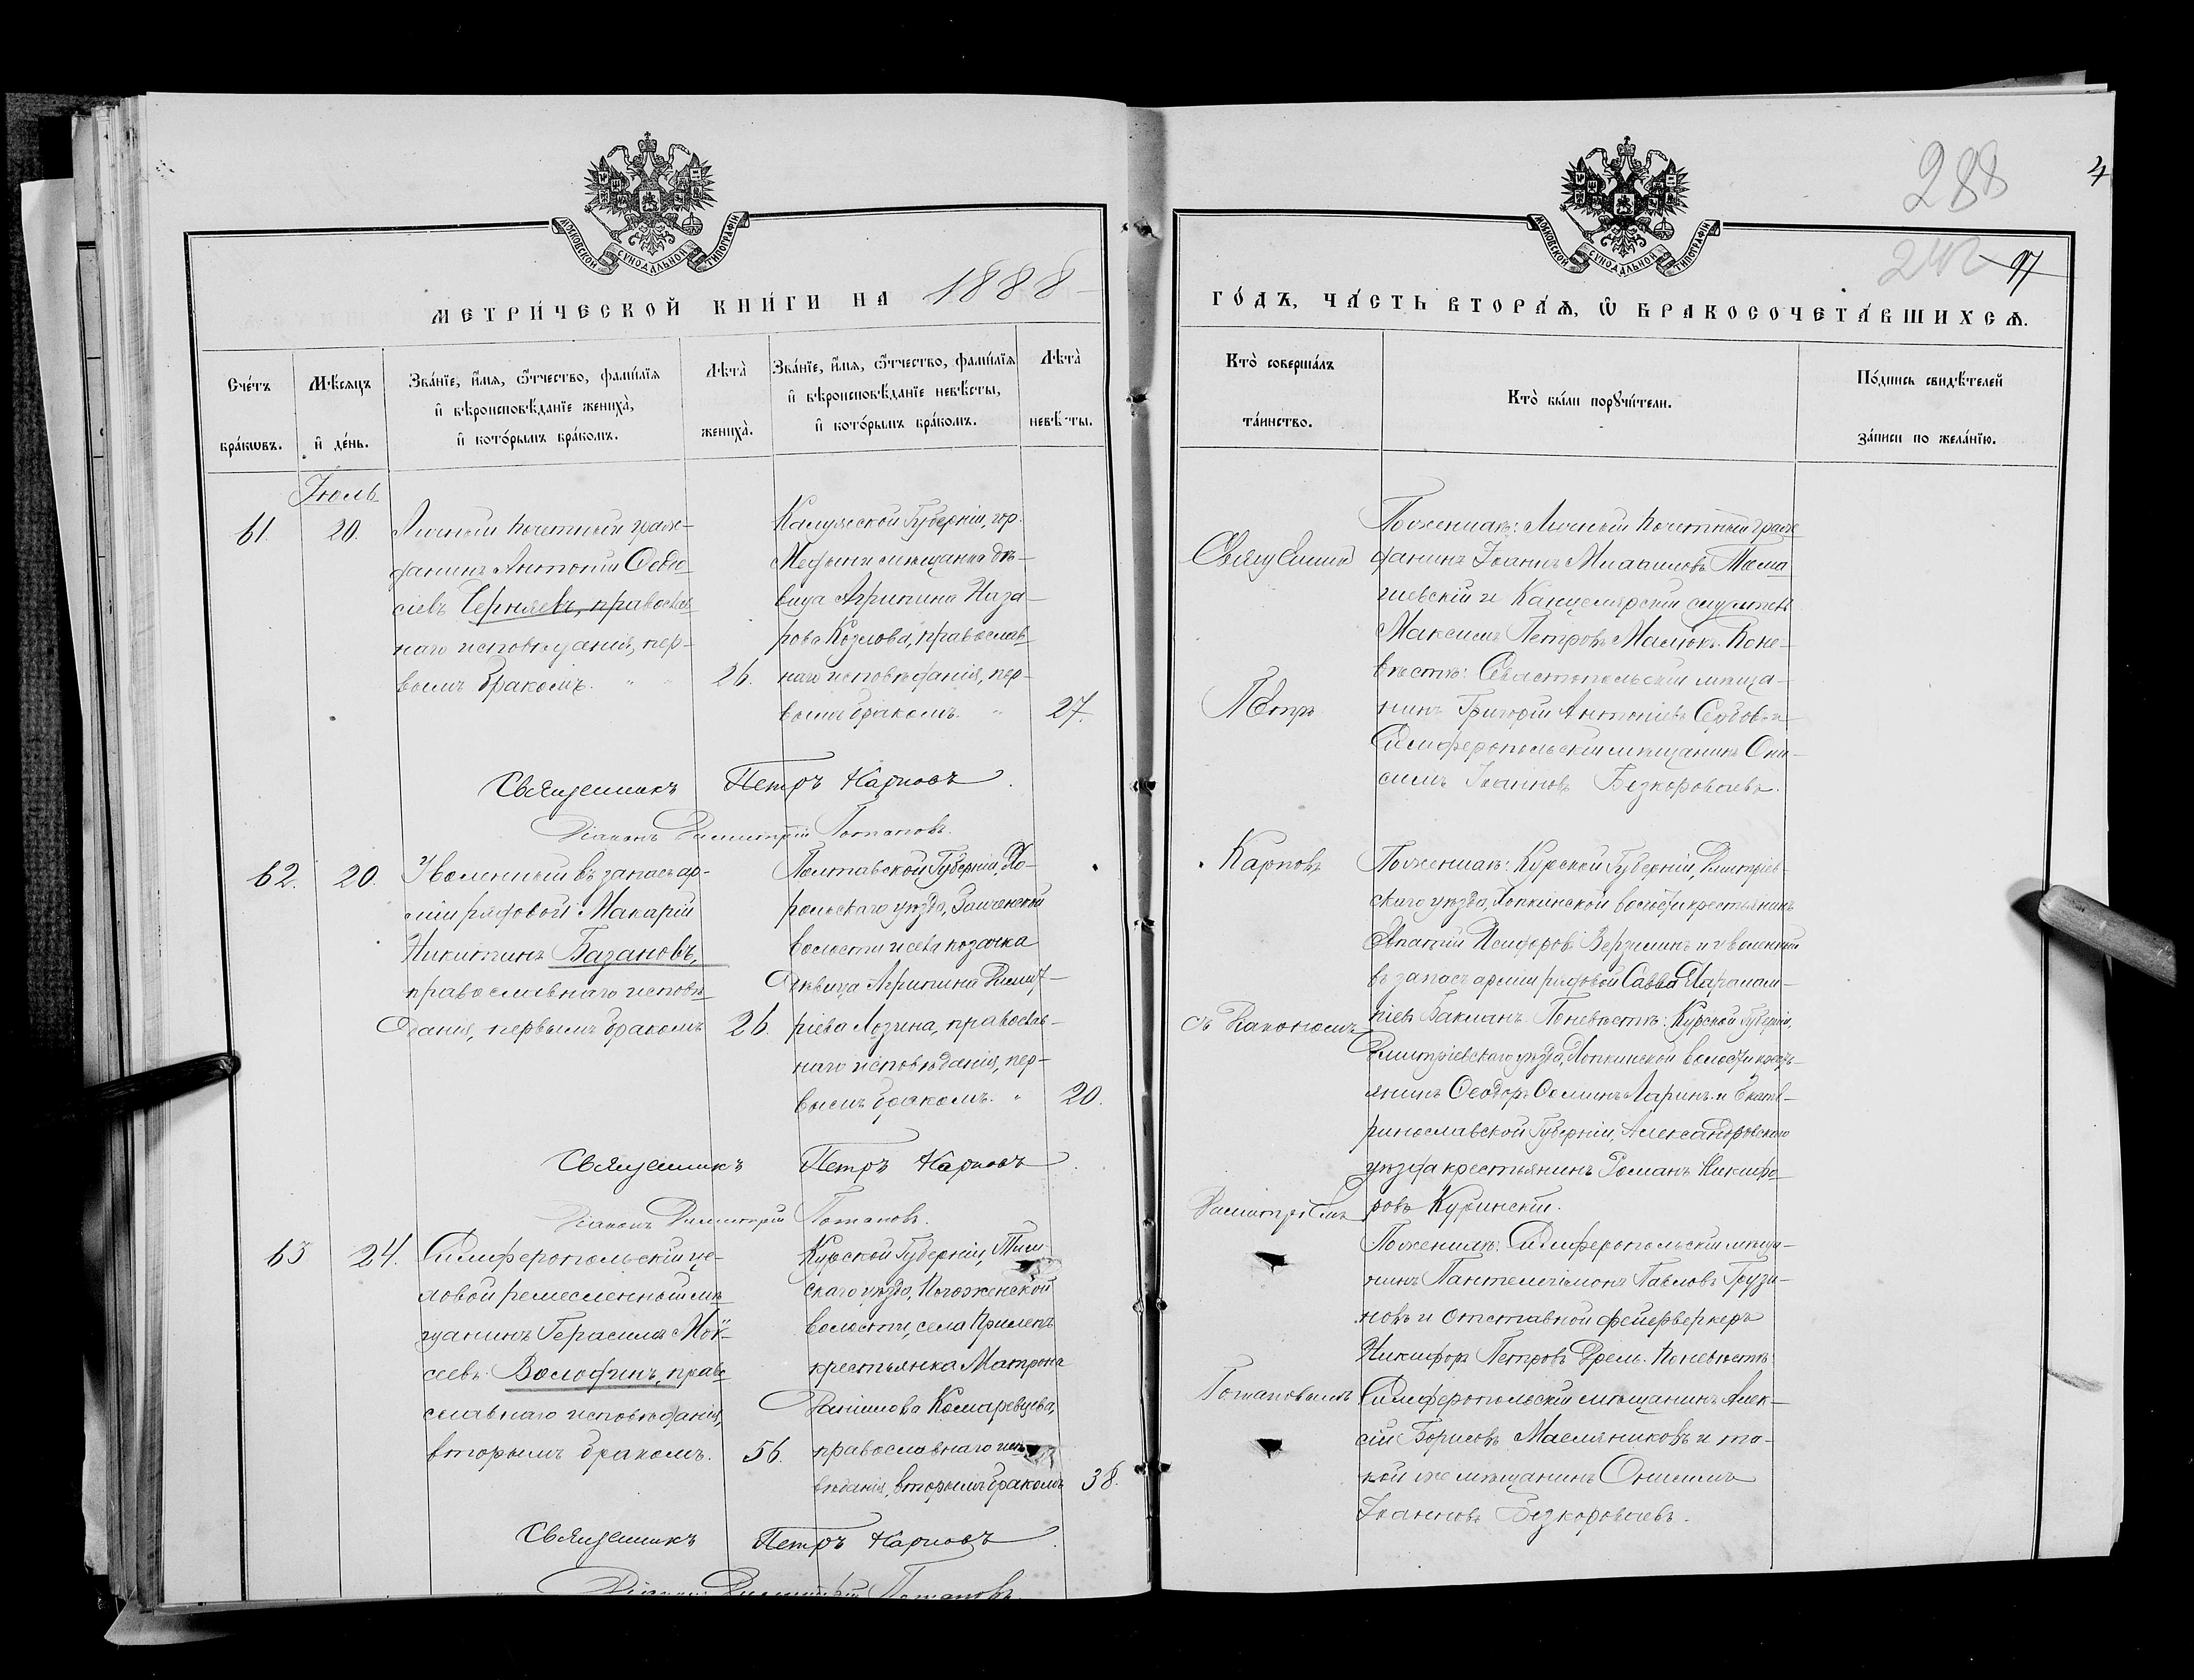 МОСКОВСКОЙ СѴНОДАЛЬНОЙ ТИПОГРАФІИ
МЕТРИ́ЧЕСКОЙ КНИ́ГИ НА 1888
Сче́тъ бра́ковъ.
Мѣ́сяцъ и де́нь.
Зва́нїе, и҆́мя, ѻ҆́тчество, фами́лїя и҆ вѣроисповѣ́данїе жениха̀, и҆ кото́рымъ бра́комъ.
Лѣта̀ жениха̀.
Зва́нїе, и҆́мя, ѻ҆́тчество, фами́лїя и҆ вѣроисповѣ́данїе невѣ́сты, и҆ кото́рымъ бра́комъ.
Лѣта̀ невѣ́сты.
Іюль
61.
20.
Личный почетный граж-
данинъ Антоній Ѳедо
сіевъ Черняевъ, православ
наго исповѣданія, пер-
вымъ бракомъ.
26.
Калужской Губерніи, гор.
Медыни мѣщанка дѣ-
вица Агрипина Наза-
рова Козлова, православ
наго исповѣданія, пер-
вымъ бракомъ.
27.
Священникъ Петръ Карповъ
Діаконъ Димитрій Потаповъ.
62.
20.
Уволенный въ запасъ ар-
міи рядовой Макарій
Никитинъ Базановъ,
православнаго исповѣ
данія, первымъ бракомъ
26.
Полтавской Губерніи, Хо-
рольскаго уѣзда,
волости и села козачка
дѣвица Агрипина Димит-
ріева Лозина, православ-
наго исповѣданія, пер-
вымъ бракомъ.
20.
Священникъ Петръ Карповъ
Діаконъ Димитрій Потаповъ.
63
24.
Симферопольскій це-
ховой ремесленный мѣ
щанинъ Герасимъ Мої-
сеевъ Волофинъ, право
славнаго исповѣданія,
вторымъ бракомъ.
56.
Курской Губерніи, Тим-
скаго уѣзда,
волости, села Прилепъ
крестьянка Матрона
Даніилова Комаревцева,
православнаго испо
вѣданія, вторымъ бракомъ
38.
Священникъ Петръ Карповъ
Діаконъ Димитрій Потаповъ.
288
4
МОСКОВСКОЙ СѴНОДАЛЬНОЙ ТИПОГРАФІИ
242
97
ГО́ДЪ, ЧА́СТЬ ВТОРА́Ѧ, Ѡ҆ БРАКОСОЧЕТА́ВШИХСѦ.
Кто̀ соверша́лъ та́инство.
Кто̀ бы́ли порꙋчи́тели.
По́дпись свидѣ́телей за́писи по жела́нїю.
Священникъ
Петръ
Карповъ
съ Діакономъ
Димитріемъ
Потаповымъ
По женихѣ: Личный почетный граж
данинъ Іоаннъ Михаиловъ
и Канцелярскій служитель
Максимъ Петровъ Малюкъ. По не-
вѣстѣ: Севастопольскій мѣща-
нинъ Григорій Антоніевъ Сербовъ и
Симферопольскій мѣщанинъ Они-
симъ Іоанновъ Безкороваевъ.
По женихѣ: Курской Губерніи, Димитріев-
скаго уѣзда, волости крестьянинъ
Исидоровъ Верзилинъ и уволенный
въ запасъ арміи рядовой Савва Харалам-
піевъ Бакманъ. По невѣстѣ: Курской Губерніи,
Димитріевскаго уѣзда, волости кресть-
янинъ Ѳеодоръ Ѳоминъ Ларинъ и Екате-
ринославской Губерніи, Александровскаго
уѣзда крестьянинъ Романъ Никифо-
ровъ Куринскій.
По женихѣ: Симферопольскій мѣща-
нинъ Пантелеімонъ Павловъ Грузи-
новъ и отставной фейерверкеръ
Никифоръ Петровъ Дрель. По невѣстѣ:
Симферопольскій мѣщанинъ Алек-
сій Борисовъ Масляниковъ и та-
кой же мѣщанинъ Онисимъ
Іоанновъ Безкороваевъ.